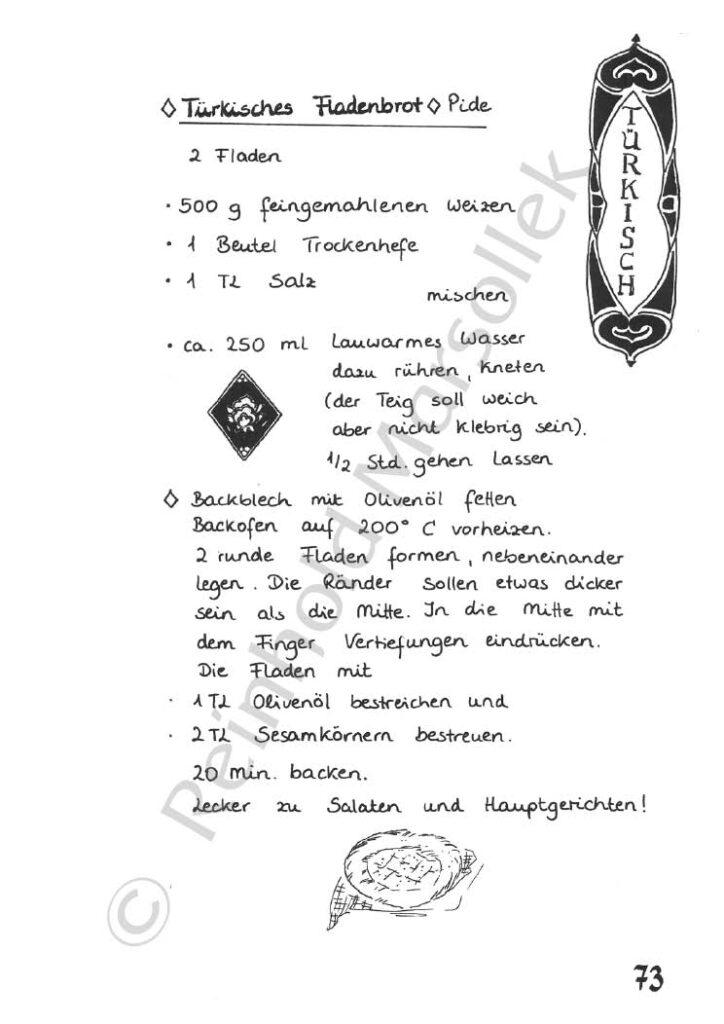 ◊ Türkisches Fladenbrot ◊ Pide
TÜRKISCH
2 Fladen
· 500 g feingemahlenen Weizen
· 1 Beutel Trockenhefe
· 1 TL Salz
mischen
· ca. 250 ml lauwarmes Wasser
dazu rühren, kneten
(der Teig soll weich
aber nicht klebrig sein).
1/2 Std. gehen lassen
◊ Backblech mit Olivenöl fetten
Backofen auf 200° C vorheizen.
2 runde Fladen formen, nebeneinander
legen. Die Ränder sollen etwas dicker
sein als die Mitte. In die Mitte mit
dem Finger Vertiefungen eindrücken.
Die Fladen mit
· 1 TL Olivenöl bestreichen und
· 2 TL Sesamkörnern bestreuen.
20 min. backen.
Lecker zu Salaten und Hauptgerichten!
© Reinhold Marsollek
73